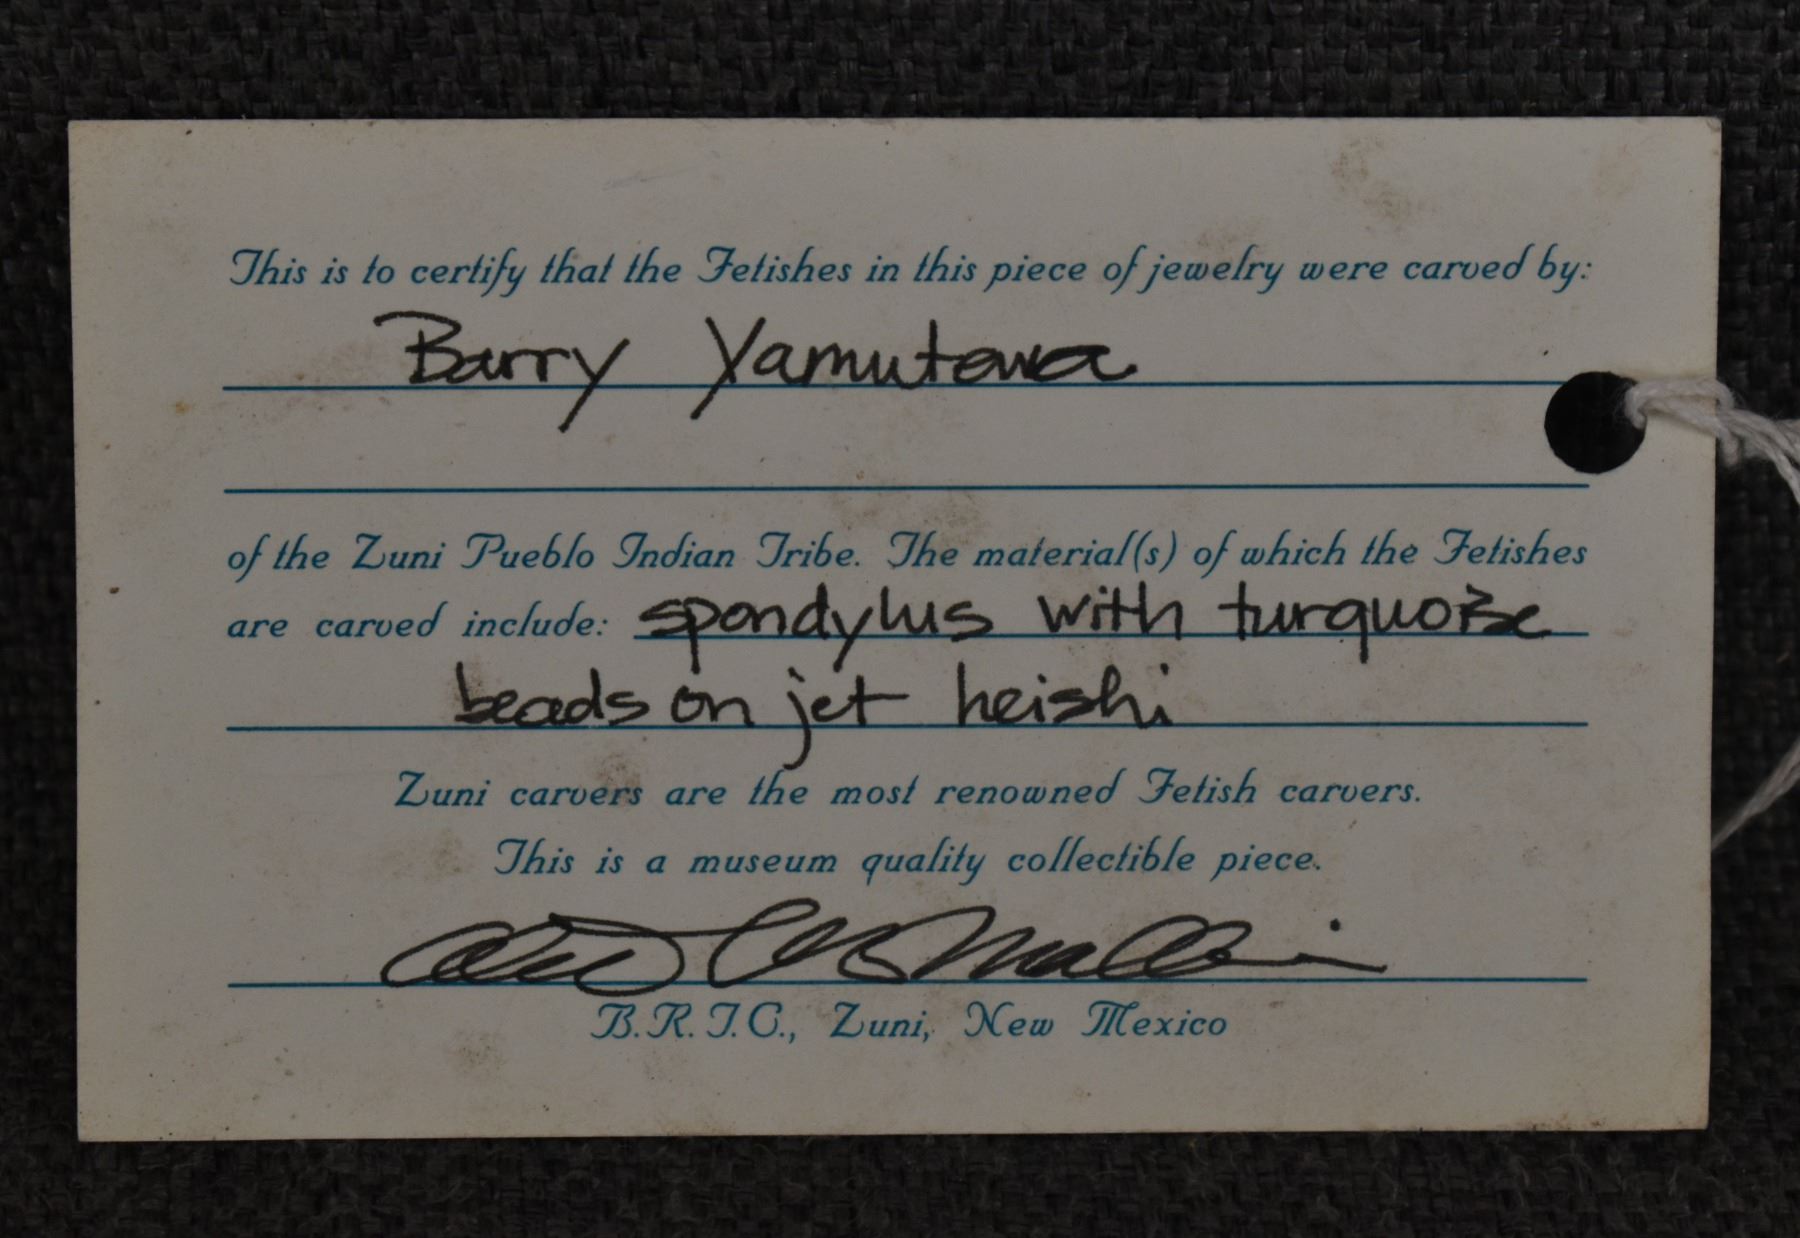 This is to certify that the Fetishes in this piece of jewelry were carved by:
Barry Yamutewa
of the Zuni Pueblo Indian Tribe. The material(s) of which the Fetishes
are carved include: spondylus with turquoise
beads on jet heishi
Zuni carvers are the most renowned Fetish carvers.
This is a museum quality collectible piece.
B.R.T.C., Zuni, New Mexico